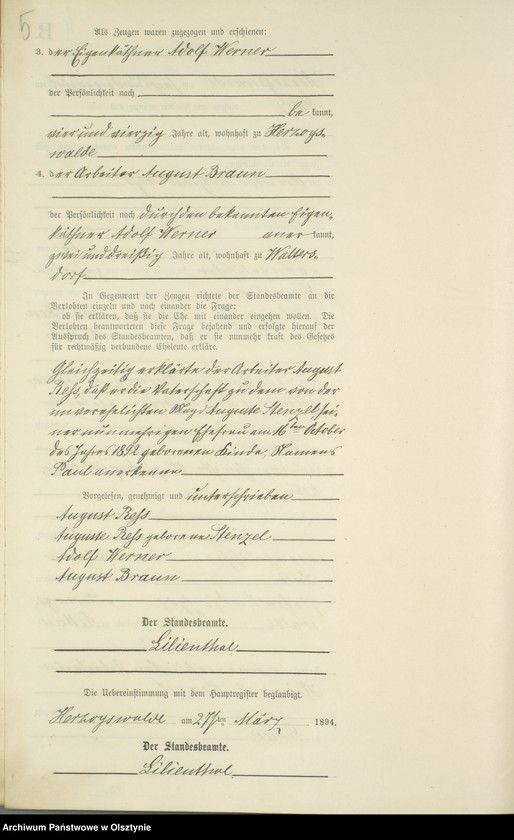 5
Als Zeugen waren zugezogen und erschienen:
3. der Eigenkäthner Adolf Werner
der Persönlichkeit nach
be kannt,
vier und vierzig Jahre alt, wohnhaft zu Herzogs-
walde
4. der Arbeiter August Braun
der Persönlichkeit nach durch den bekannten Eigen-
käthner Adolf Werner aner kannt,
zwei und dreißig Jahre alt, wohnhaft zu Walters-
dorf
In Gegenwart der Zeugen richtete der Standesbeamte an die
Verlobten einzeln und nach einander die Frage:
ob sie erklären, daß sie die Ehe mit einander eingehen wollen. Die
Verlobten beantworteten diese Frage bejahend und erfolgte hierauf der
Ausspruch des Standesbeamten, daß er sie nunmehr kraft des Gesetzes
für rechtmäßig verbundene Eheleute erkläre.
Gleichzeitig erklärte der Arbeiter August
Reß, daß er die Vaterschaft zu dem von der
unverehelichten Magd Auguste Stenzel, sei-
ner nunmehrigen Ehefrau am 16ten October
des Jahres 1892 geborenen Kinde, Namens
Paul anerkenne
Vorgelesen, genehmigt und unterschrieben
August Reß
Auguste Reß geborene Stenzel
Adolf Werner
August Braun
Der Standesbeamte.
Lilienthal
Die Uebereinstimmung mit dem Hauptregister beglaubigt.
Herzogswalde am 27ten März 1894.
Der Standesbeamte.
Lilienthal
Archiwum Państwowe w Olsztynie